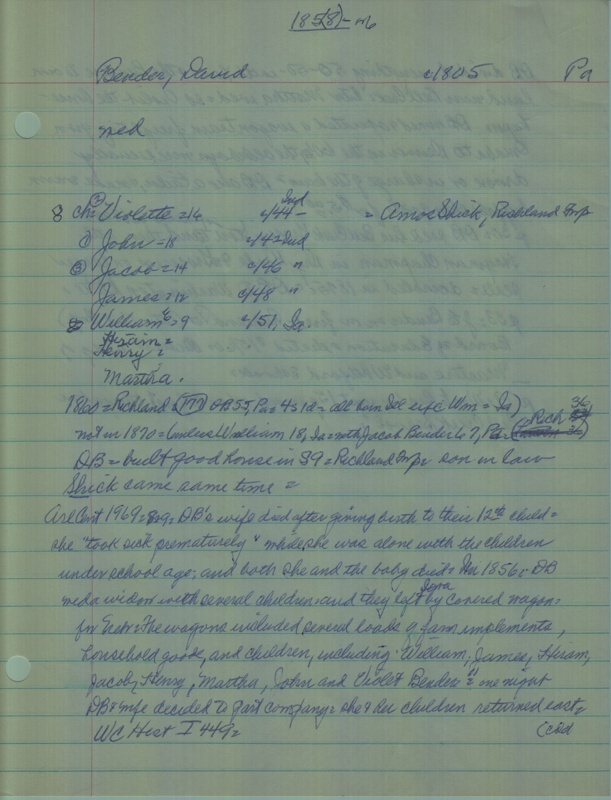 185(8)-m
Bender, David c1805 Pa
med
8 ch= (2) Violette=16 c/44- Ind = Amos Shick, Richland Twp
(1) John=18 c/42=Ind
(3) Jacob=14 c/46 "
James=12 c/48 "
William E=9 c/51, Ia
Hiram=
Henry=
Martha.
1860=Richland DB 55, Pa= 4s 1d= all born Ind exc Wm=Ia)
not in 1870=census William 18, Ia=with Jacob Bender 67, Pa= (Rich 36,
DB=built good house in S9=Richland Twp son in law
Shick came same time=
Arl Cent 1969=89= DB's wife died after giving birth to their 12th child=
she "took sick prematurely" while she was alone with the children
under school age, and both she and the baby died= In 1856= DB
med a widow with several children and they left Iowa by covered wagon=
for Nebr= The wagons included several loads of farm implements,
household goods, and children, including William, James, Hiram,
Jacob, Henry, Martha, John and Violet Bender" = one night
DB & wife decided to part company= she & her children returned east,
WC Hist I 449=